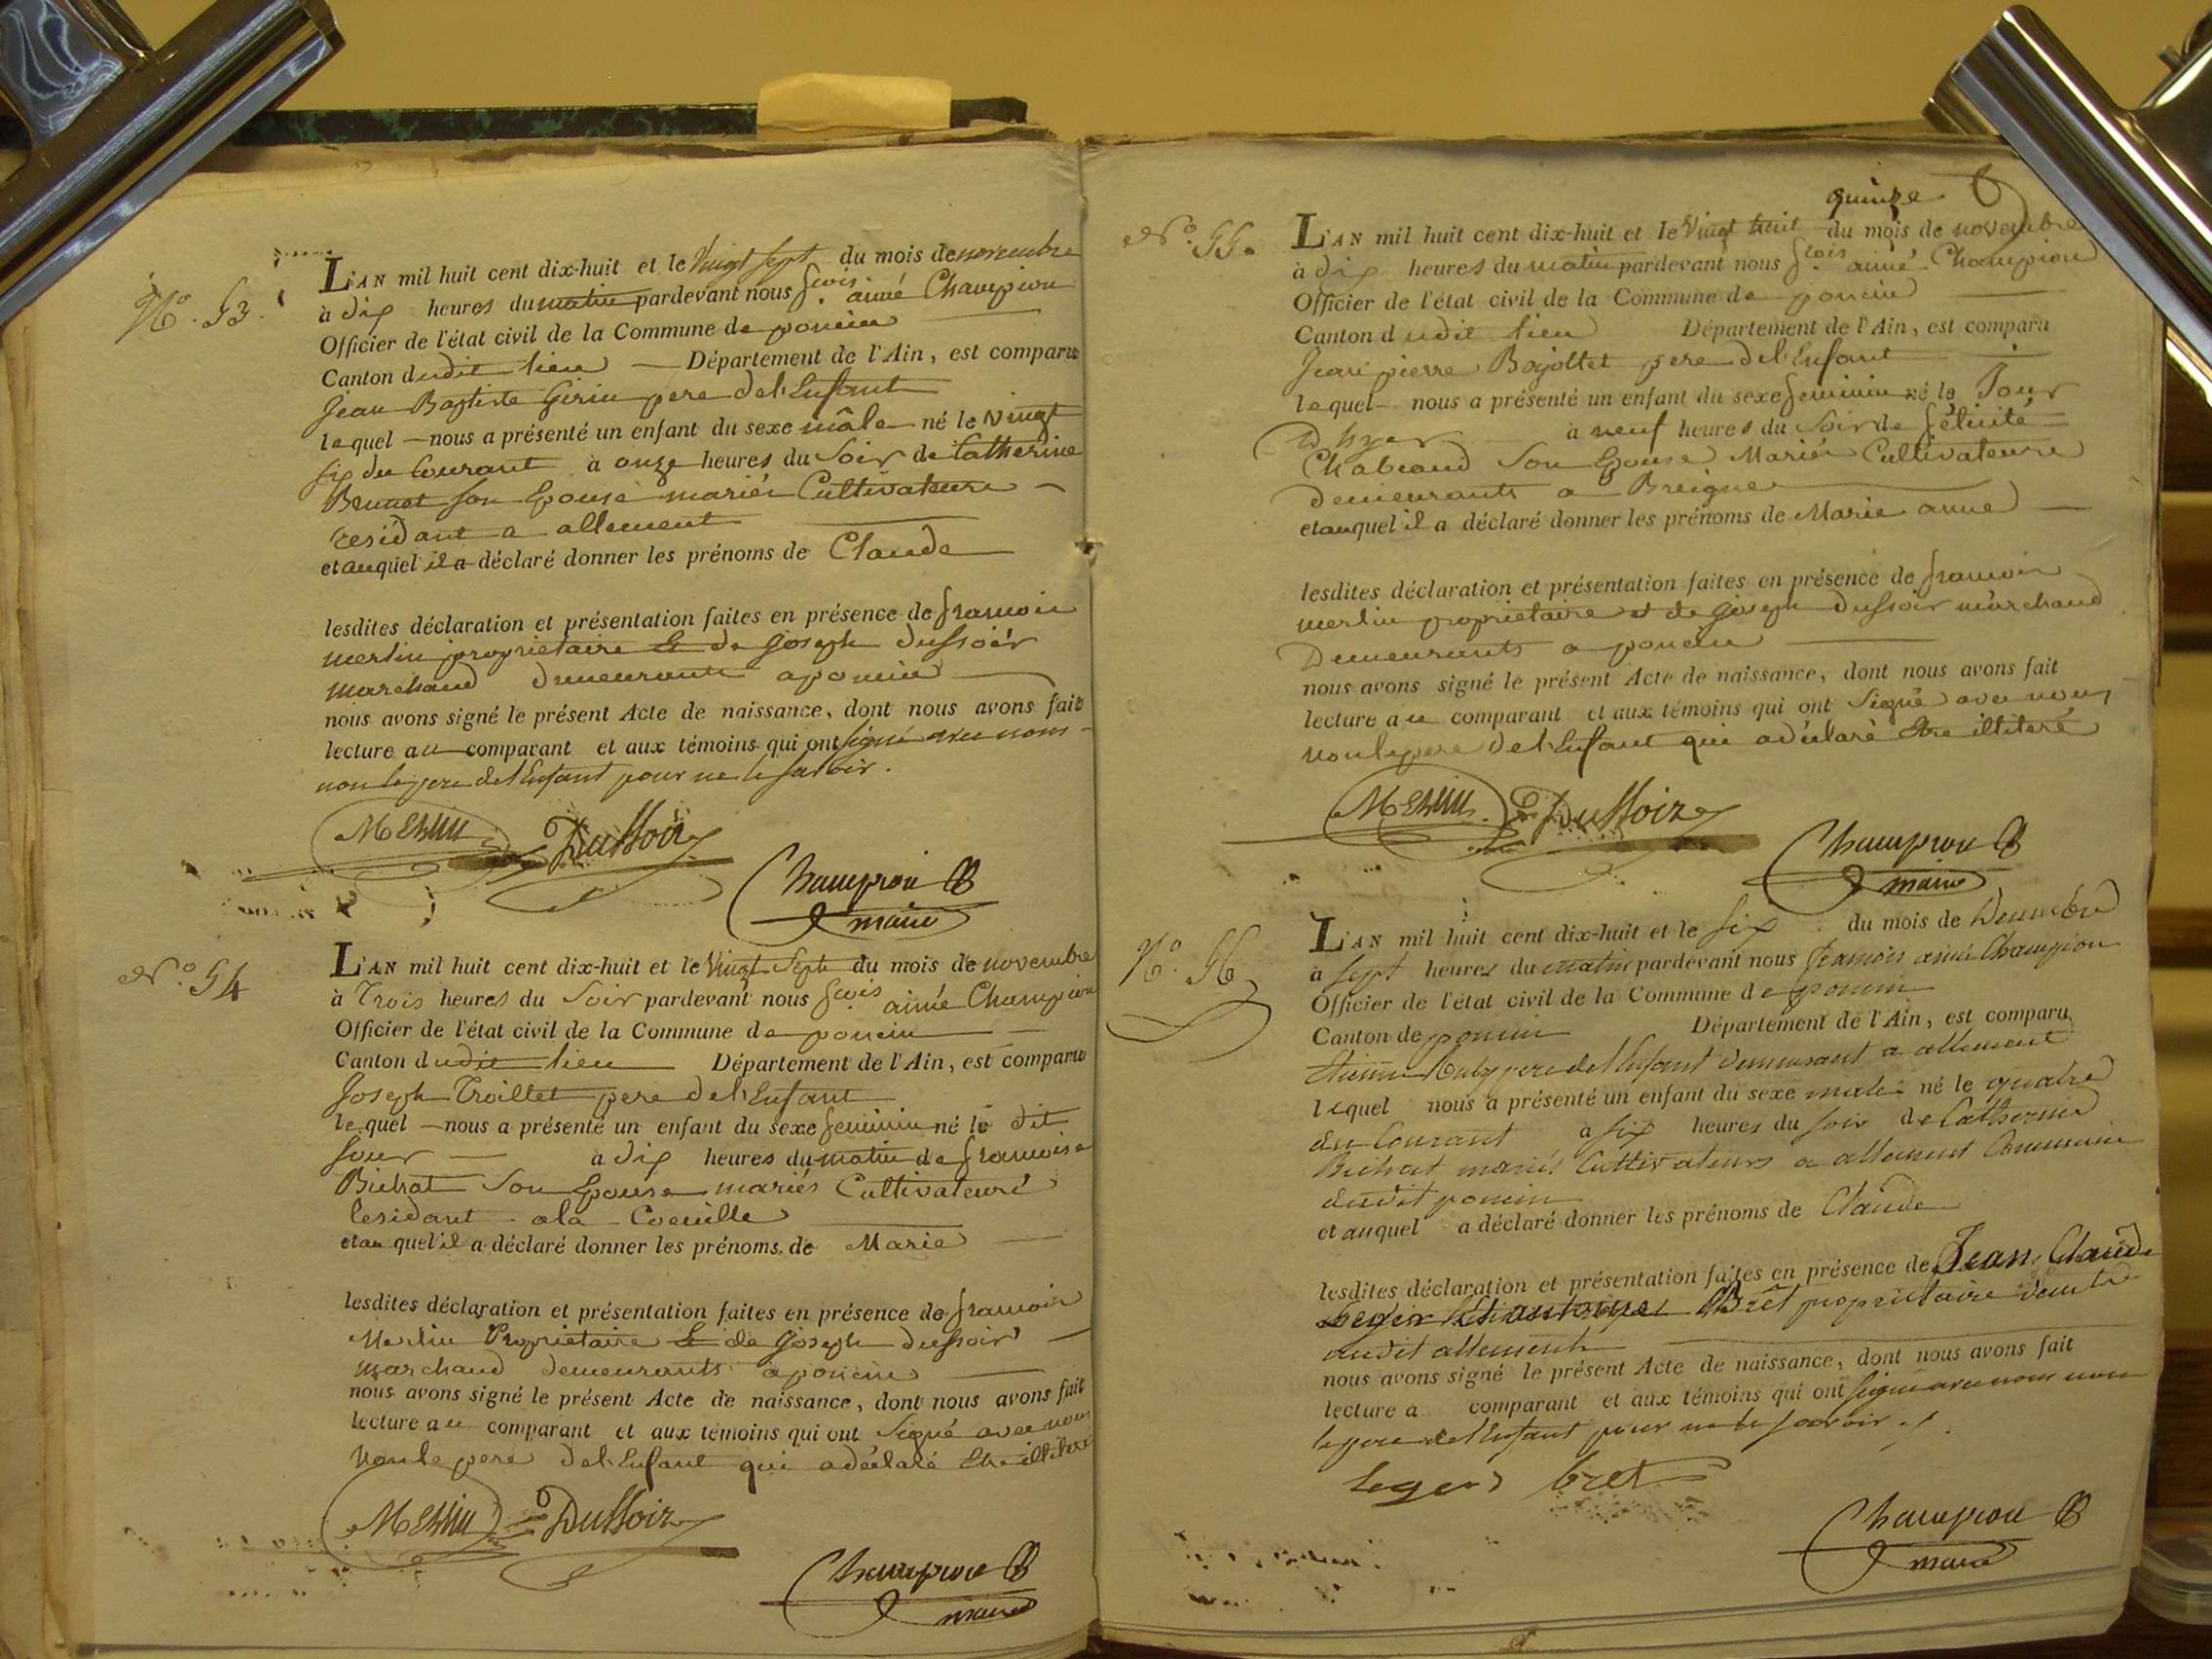 N.º 53.
L'AN mil huit cent dix-huit et le Vingt sept du mois de novembre
à dix heures du matin pardevant nous fcois aimé Champion
Officier de l'état civil de la Commune de poncin
Canton dudit lieu Département de l'Ain, est comparu
Jean Baptiste Girin pere de l'Enfant
lequel nous a présenté un enfant du sexe mâle né le vingt
six du Courant à onze heures du Soir de Catherine
son Epouse mariés Cultivateurs
residant a allement
et auquel il a déclaré donner les prénoms de Claude
lesdites déclaration et présentation faites en présence de francois
merlin propriétaire & de joseph dussoir
marchand demeurants a poncin
nous avons signé le présent Acte de naissance, dont nous avons fait
lecture au comparant et aux témoins qui ont signé avec nous
non le pere de l'Enfant pour ne le savoir.
Merlin Dussoir
Champion
maire
N.º 54
L'AN mil huit cent dix-huit et le Vingt Sept du mois de novembre
à Trois heures du Soir pardevant nous fcois aimé Champion
Officier de l'état civil de la Commune de poncin
Canton dudit lieu Département de l'Ain, est comparu
Joseph Troillet pere de l'Enfant
lequel nous a présenté un enfant du sexe feminin né le dit
Jour à dix heures du matin de francoise
Bichat Son Epouse mariés Cultivateurs
residant a la Coeuille
et auquel il a déclaré donner les prénoms de Marie
lesdites déclaration et présentation faites en présence de francois
Merlin Propriétaire & de joseph dussoir
marchand demeurants a poncin
nous avons signé le présent Acte de naissance, dont nous avons fait
lecture au comparant et aux témoins qui ont Signé avec nous
Non le pere de l'Enfant qui a déclaré Etre illiteré
Merlin Dussoir
Champion
maire
quinze
N.º 55.
L'AN mil huit cent dix-huit et le Vingt huit du mois de novembre
à dix heures du matin pardevant nous fcois aimé Champion
Officier de l'état civil de la Commune de poncin
Canton dudit lieu Département de l'Ain, est comparu
Jean pierre Bojottet pere de l'Enfant
lequel nous a présenté un enfant du sexe feminin né le Jour
D'hyer à neuf heures du Soir de félicité
Chabeaud Son Epouse Mariés Cultivateurs
demeurants a Breigne
et auquel il a déclaré donner les prénoms de Marie anne
lesdites déclaration et présentation faites en présence de francois
merlin propriétaire et de joseph dussoir marchand
Demeurants a poncin
nous avons signé le présent Acte de naissance, dont nous avons fait
lecture au comparant et aux témoins qui ont Signé avec nous
non le pere de l'Enfant qui a déclaré Etre illiteré
Merlin Dussoir
Champion
maire
N.º 56
L'AN mil huit cent dix-huit et le six du mois de Decembre
à sept heures du matin pardevant nous francois aimé Champion
Officier de l'état civil de la Commune de poncin
Canton de poncin Département de l'Ain, est comparu
Etienne pere de l'Enfant demeurant a allement
lequel nous a présenté un enfant du sexe male né le quatre
du Courant à six heures du soir de Catherine
Bichat mariés Cultivateurs a allement Commune
dudit poncin
et auquel a déclaré donner les prénoms de Claude
lesdites déclaration et présentation faites en présence de Jean Claude
Leger Et antoine Brêt propriétaire
audit allement
nous avons signé le présent Acte de naissance, dont nous avons fait
lecture a comparant et aux témoins qui ont signé avec nous non
le pere de l'Enfant pour ne le savoir.
Leger bret
Champion
maire